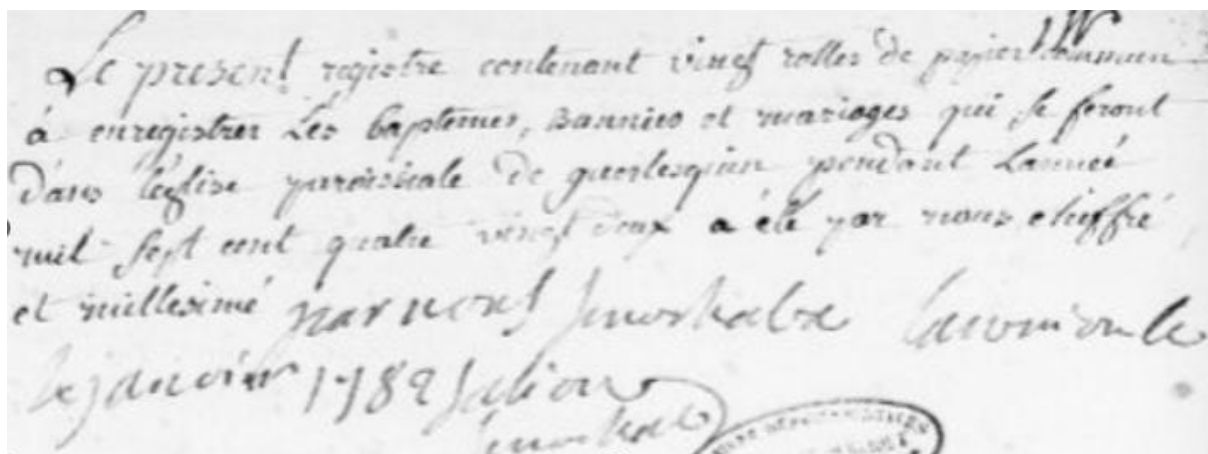 Le present registre contenant vingt rolles de papier commun
à enregistrer Les baptemes, Bannies et mariages qui se feront
dans l'église paroissiale de guerlesquin pendant L'année
mil sept cent quatre vingt deux a été par nous chiffré
et millesimé par nous
janvier 1782